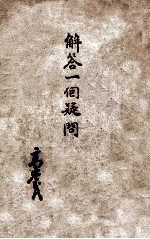 解答一個疑問